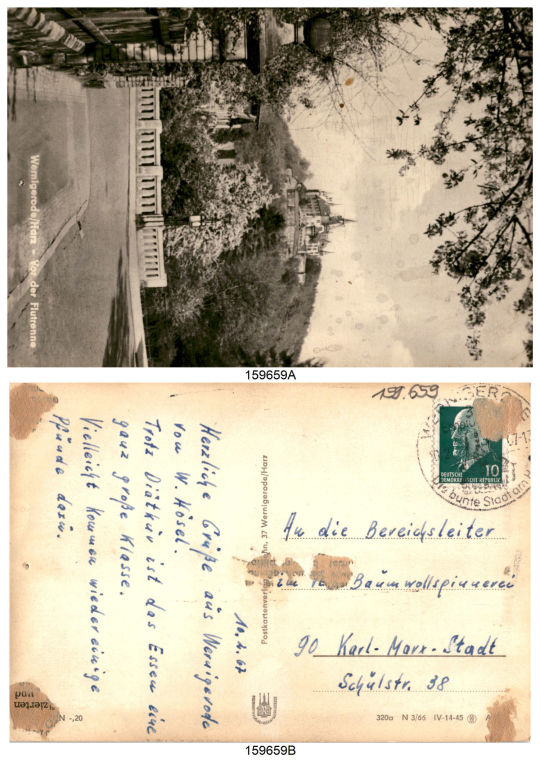 Wernigerode/Harz - Vor der Flutrenne
159659A
159.659
WERNIGERODE
bunte Stadt am
DEUTSCHE
DEMOKRATISCHE REPUBLIK
10
10.1.67
Herzliche Grüße aus Wernigerode
von W. Hösel.
Trotz Diätkur ist das Essen eine
ganz große Klasse.
Vielleicht kommen wieder einige
Pfunde dazu.
37 Wernigerode/Harz
An die Bereichsleiter
im Baumwollspinnerei
90 Karl-Marx-Stadt
Schulstr. 38
zierten
und
N -,20
320a N 3/66 IV-14-45
159659B